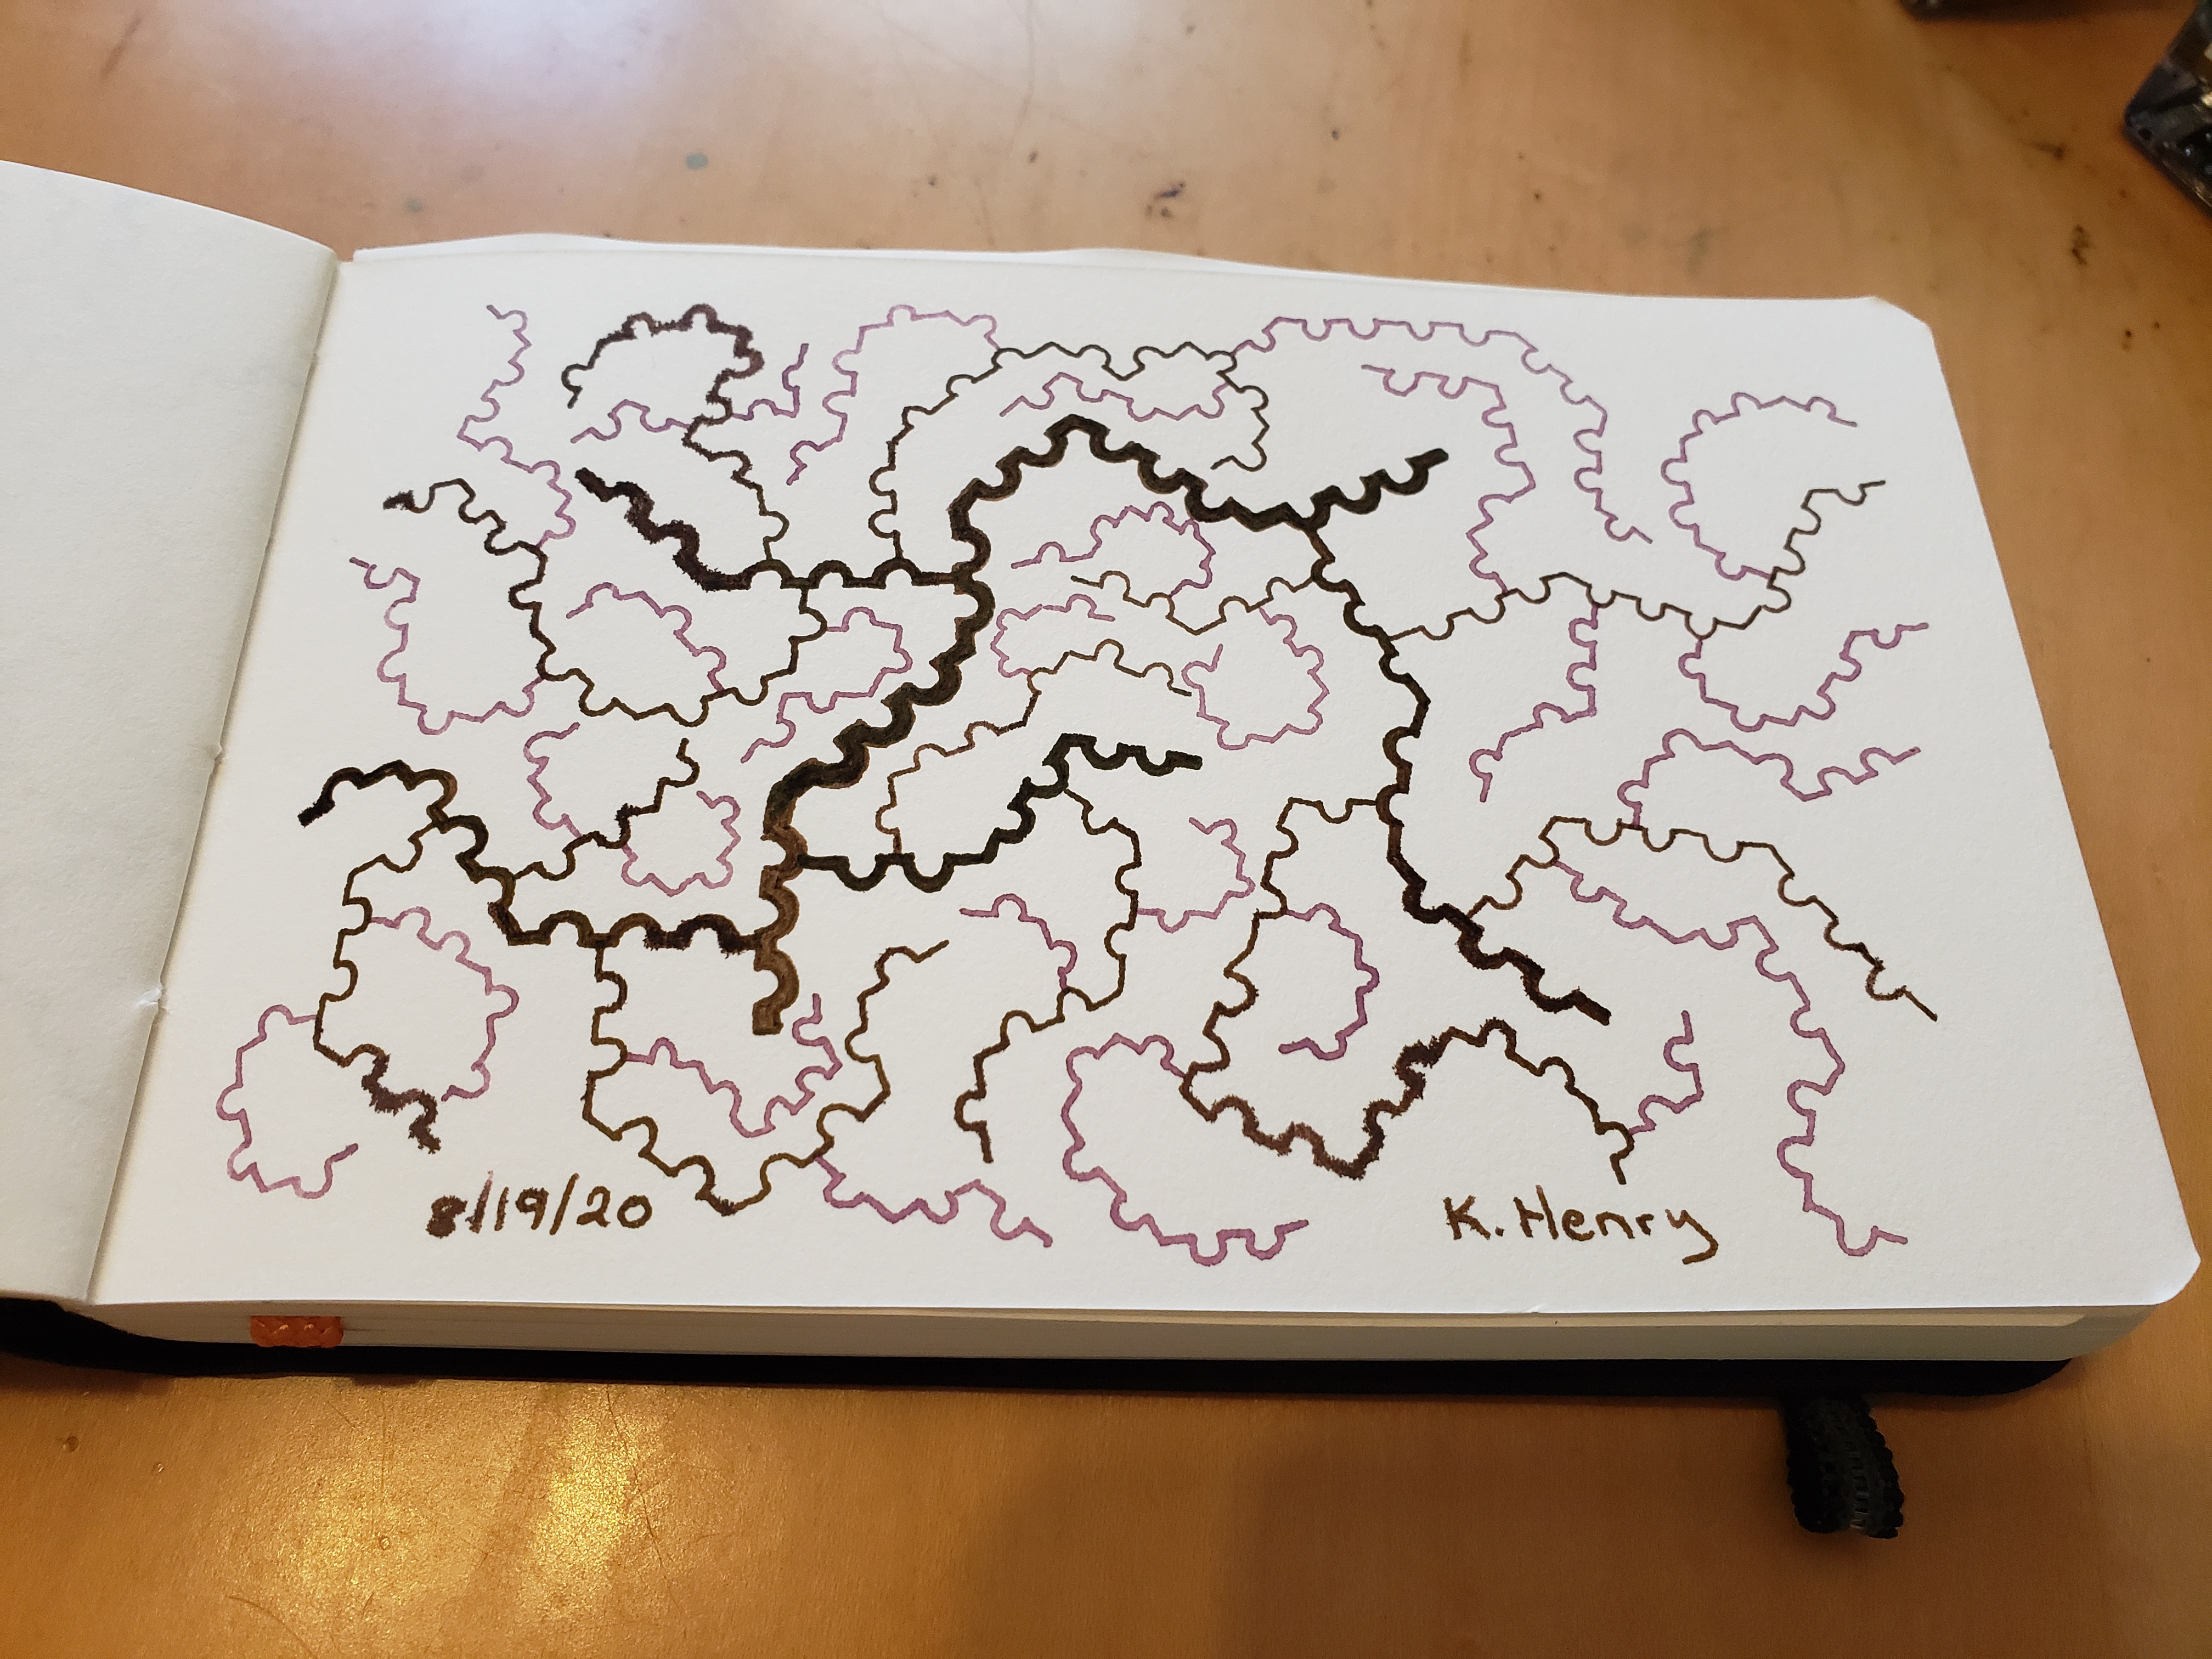 8/19/20
K. Henry